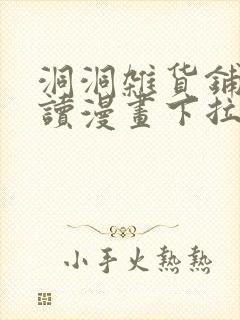 洞洞雜貨鋪
讀漫畫下拉
小手火熱熱